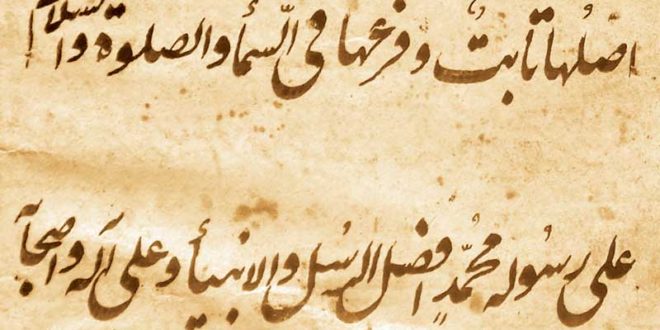 اصلُها ثابتٌ وفرعها فى السّمأ والصلوة والسلام
على رسُوله محُمّدٍ افضل الرسُل والانبيأ وعلى آله واصحابه